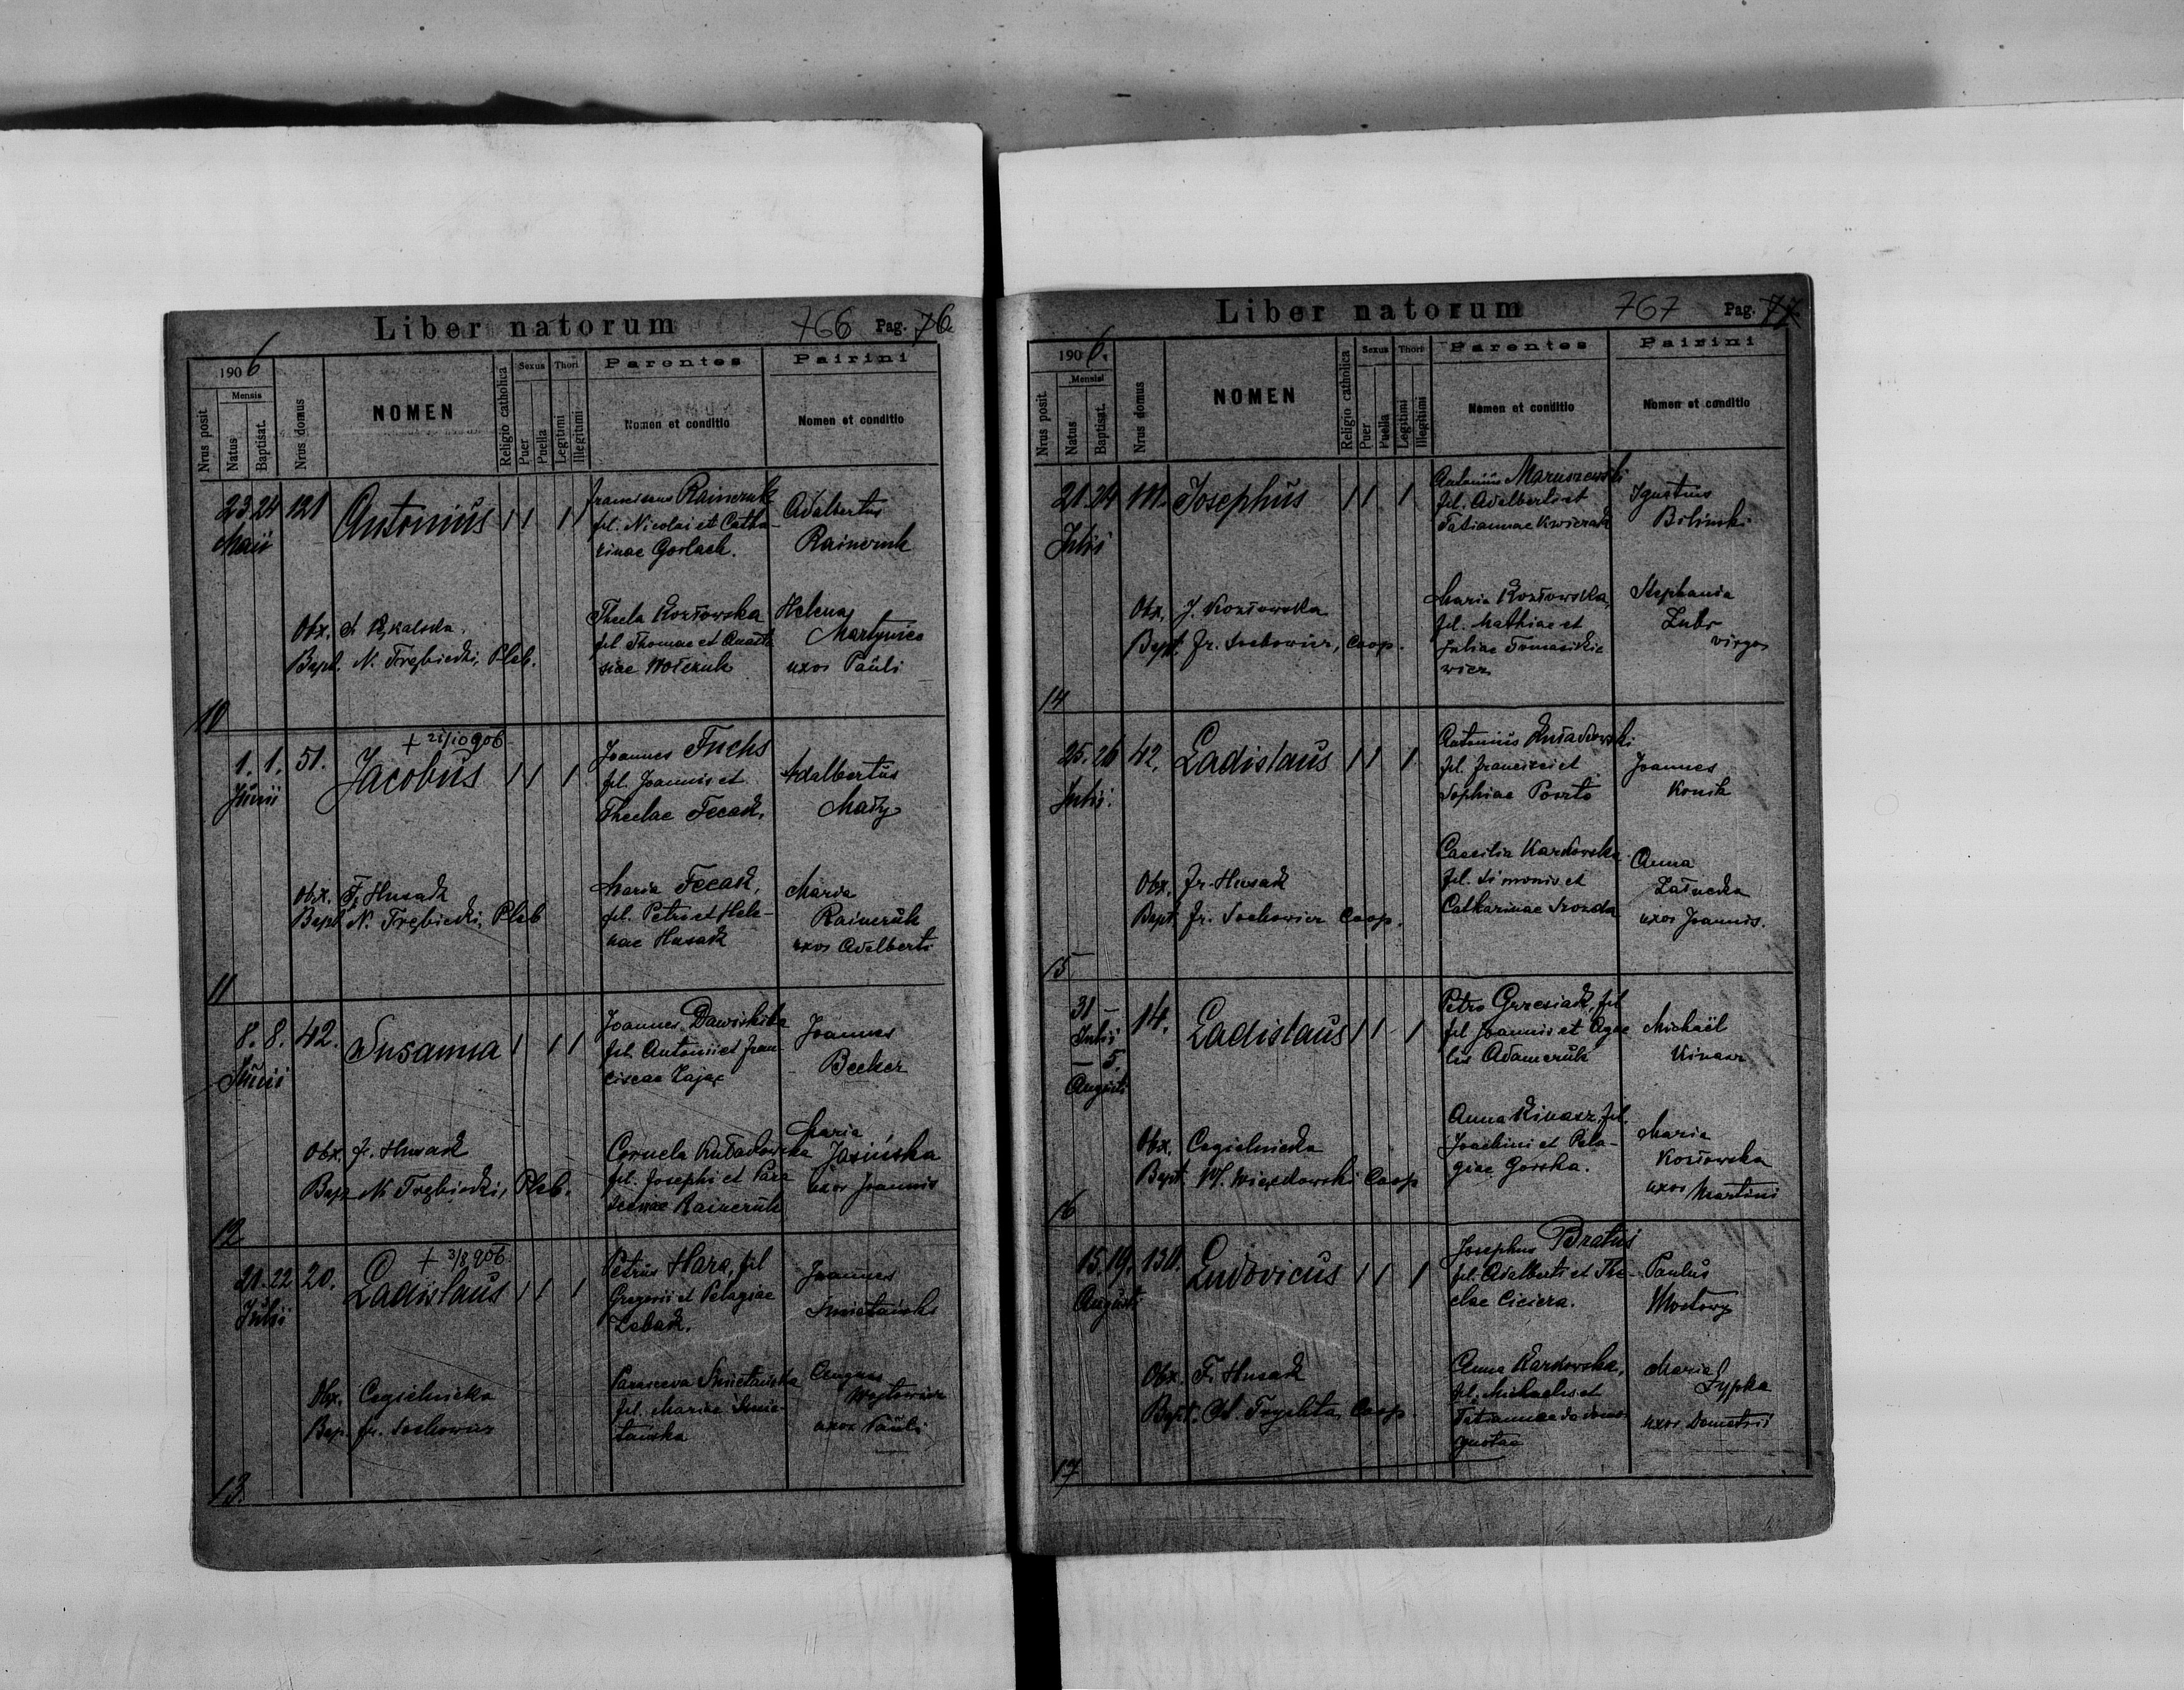 Liber natorum 766 Pag. 76.
1906
Mensis
Nrus posit
Natus
Baptisat.
Nrus domus
NOMEN
Religio catholica
Sexus
Puer
Puella
Thori
Legitimi
Illegitimi
Parentes
Nomen et conditio
Pairini
Nomen et conditio
23 24 121 Antonius 1 1 1
Maii
Franciscus Rainczuk
fil. Nicolai et Catha-
rinae Gorlach.
Adalbertus
Rainczuk
Obx.
Bapt. N. Trębicki, Pleb.
Thecla Kozłowska
fil. Thomae et Anasta
siae Wołczuk
Helena
Martynico
uxor Pauli
10
+ 21/10 906
1. 1. 51. Jacobus 1 1 1
Junii
Joannes Fuchs
fil. Joannis et
Theclae Fecak.
Adalbertus
Mały
Obx. F. Husak
Bapt. N. Trębicki, Pleb
Maria Fecak,
fil. Petri et Hele-
nae Husak
Maria
Rainczuk
uxor Adalberti
11
8. 8. 42. Susanna 1 1 1
Junii
Joannes
fil. Antonii et Fran-
ciscae Zając
Joannes
Becker
Obx. Fr. Husak
Bap. N. Trębicki, Pleb.
Cornela
fil. Josephi et Para
scevae Rainczuk
Maria
Jasińska
uxor Joannis
12
+ 3/8 906
21. 22 20. Ladislaus 1 1 1
Julii
Petrus Hara, fil
Gregorii et Pelagiae
Zabak.
Joannes
Śmietański
Obx. Cegielnicka
Bap. Fr. Sochowicz
Parasceva Śmietańska
fil. Mariae Śmie-
tańska
Wojtowicz
uxor Pauli
13.
Liber natorum 767 Pag. 77.
1906.
Mensisi
Nrus posit
Natus
Baptisat.
Nrus domus
NOMEN
Religio catholica
Sexus
Puer
Puella
Thori
Legitimi
Illegitimi
Parentes
Nomen et conditio
Pairini
Nomen et conditio
21. 24 111. Josephus 1 1 1
Julii
Antonius Maruszewski
fil. Adalberti et
Tatiannae Kwiczak
Ignatius
Biliński
Obx. J. Kozłowska
Bapt. Fr. Sochowicz, Coop.
Maria Kozłowska,
fil. Mathiae et
Juliae Tomasikie
wicz
Stephania
Zubr
virgo
14
25. 26 42. Ladislaus 1 1 1
Julii.
Antonius
fil. Francisci et
Sophiae Poszto
Joannes
Konik
Obx. Fr. Husak
Bapt. Fr. Sochowicz Coop.
Caecilia Karkowska
fil. Simonis et
Catharinae
Anna
Załucka
uxor Joannis.
15
31 –
Julii 14. Ladislaus 1 1 1
– 5.
Augusti
Petro Grzesiak, fil
fil. Joannis et Aga
tes Adamczuk
Michaël
Kinasz
Obx. Cegielnicka
Bapt. Wł. Więckowski Coop
Anna Kinasz, fil.
Joachimi et Pela-
giae Gorska.
Maria
Kozłowska
uxor Martini
16
15. 19. 130. Ludovicus 1 1 1
Augusti
Josephus Bratus
fil. Adalberti et The-
clae Ciciera.
Paulus
Mostowy
Obx. F. Husak
Bapt. Coop.
Anna Karkowska,
fil. Michaelis et
Tatiannae de domo
ignotae
Maria
Zypka
uxor Demetrii
17